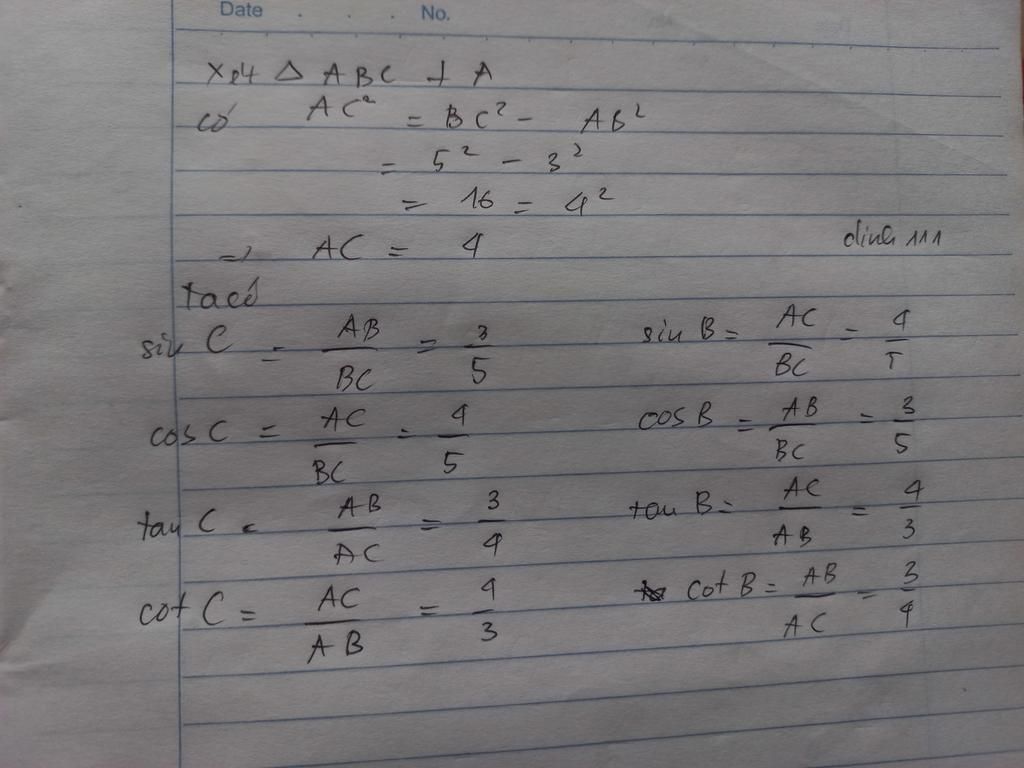 Date . . . No.
Xét Δ ABC ⊥ A
có AC² = BC² - AB²
= 5² - 3²
= 16 = 4²
=> AC = 4
ta có
sin C = AB/BC = 3/5 sin B = AC/BC = 4/5
cos C = AC/BC = 4/5 cos B = AB/BC = 3/5
tan C = AB/AC = 3/4 tan B = AC/AB = 4/3
cot C = AC/AB = 4/3 cot B = AB/AC = 3/4